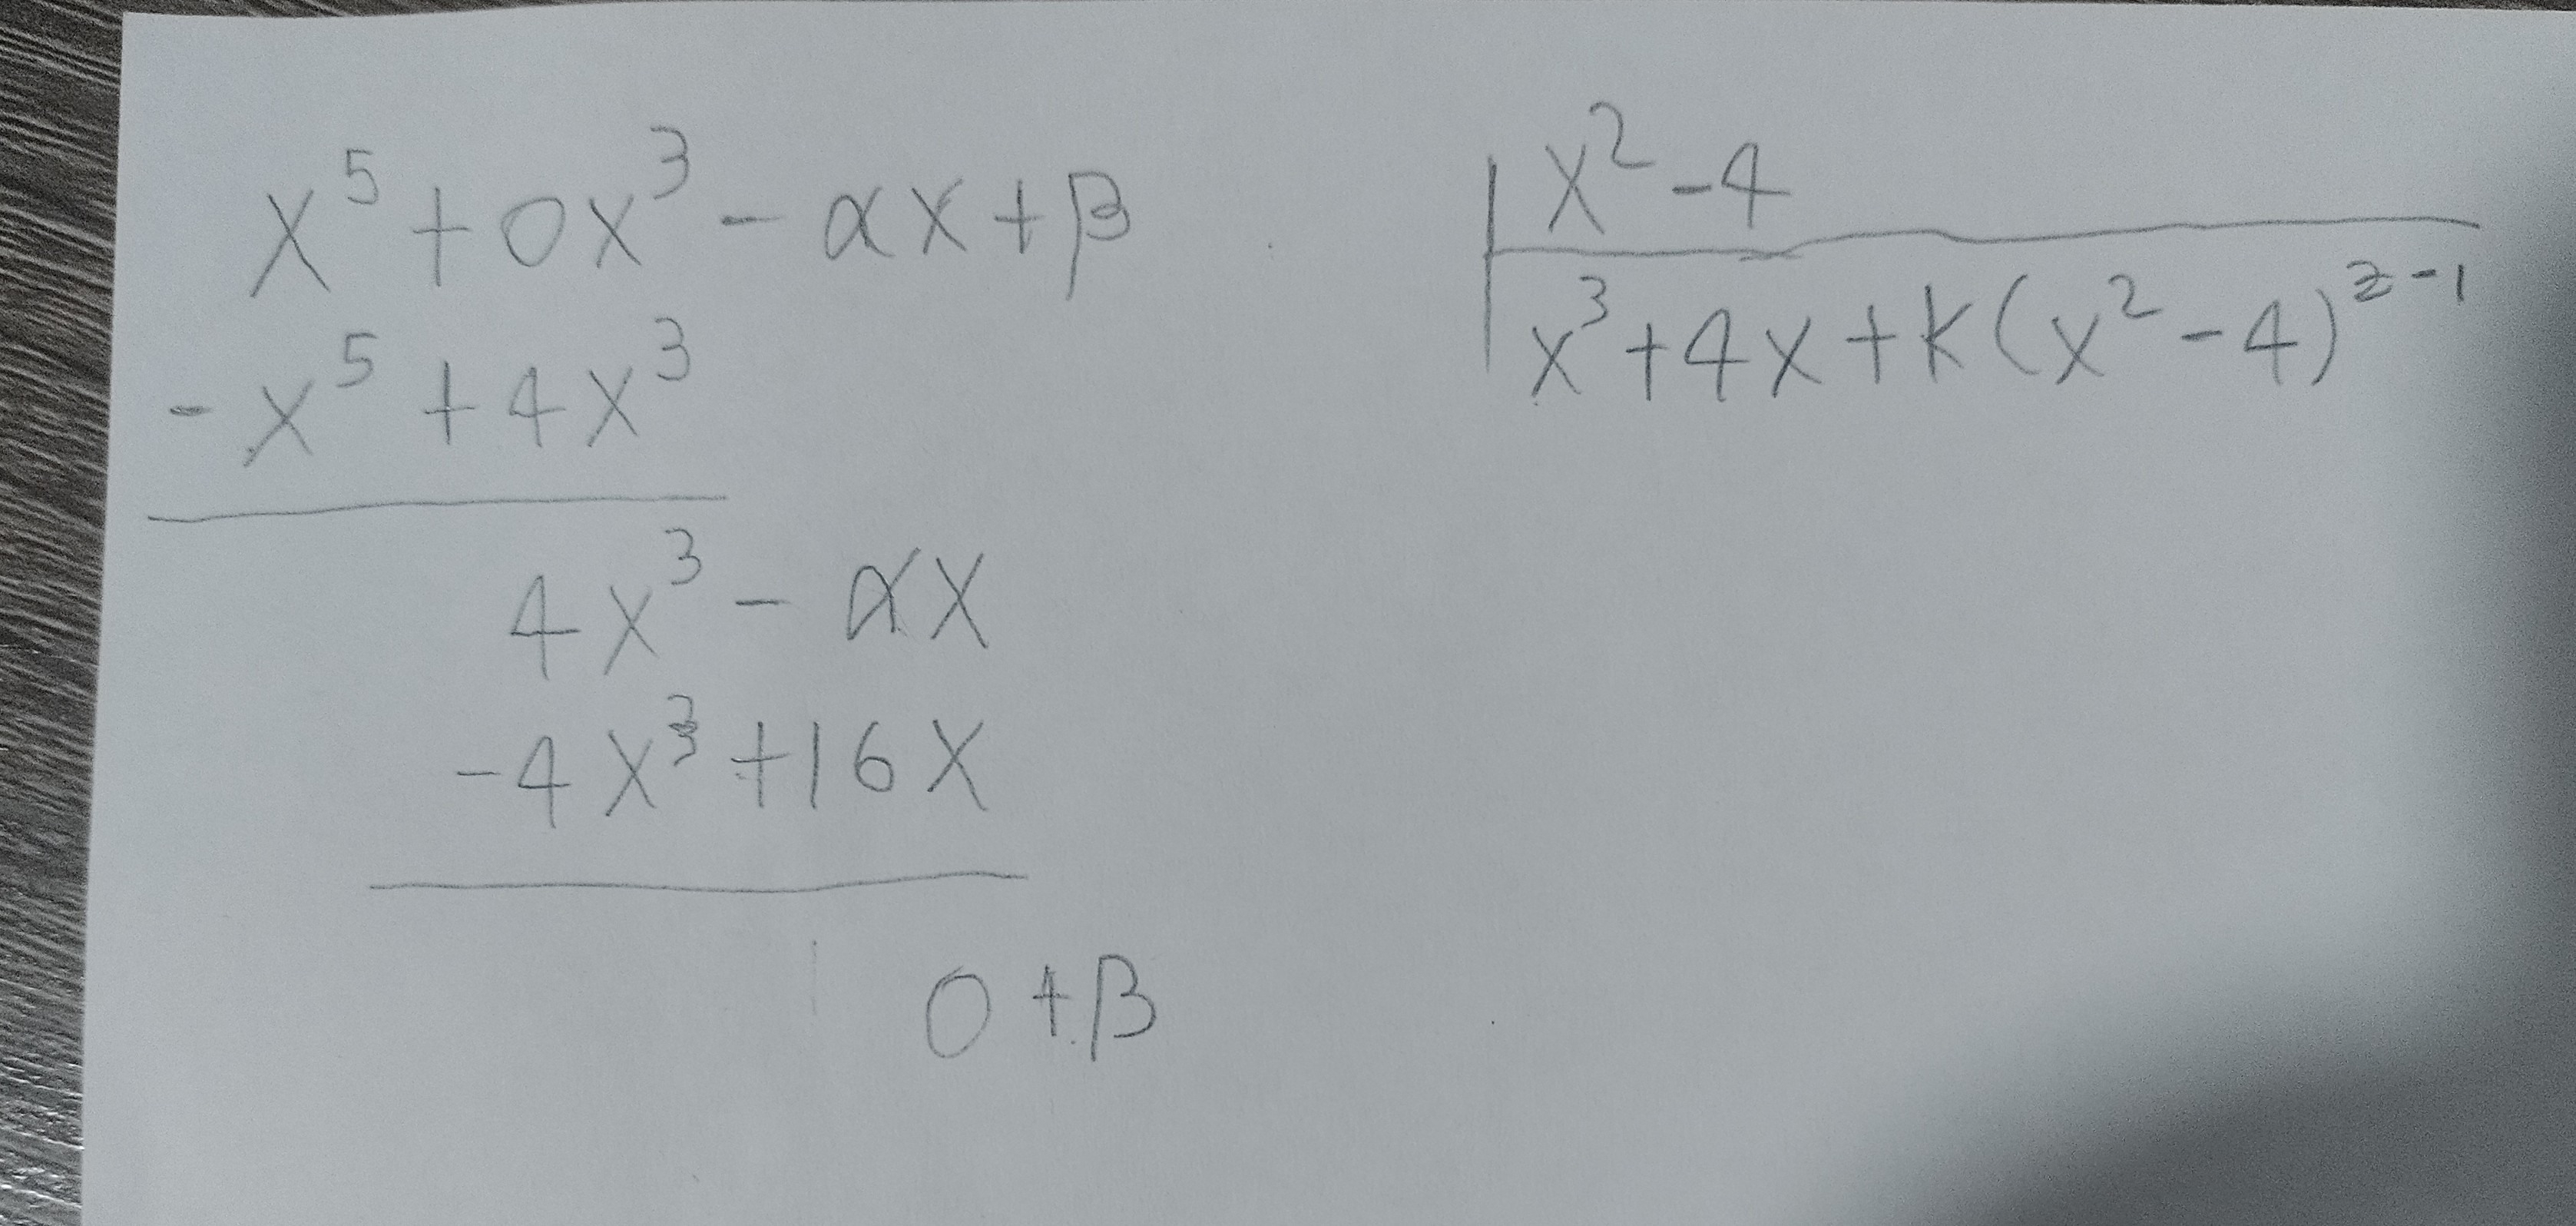 x⁵ + 0x³ - αx + β
- x⁵ + 4x³
4x³ - αx
- 4x³ + 16x
0 + β
x² - 4
x³ + 4x + K(x² - 4)ᶻ⁻¹